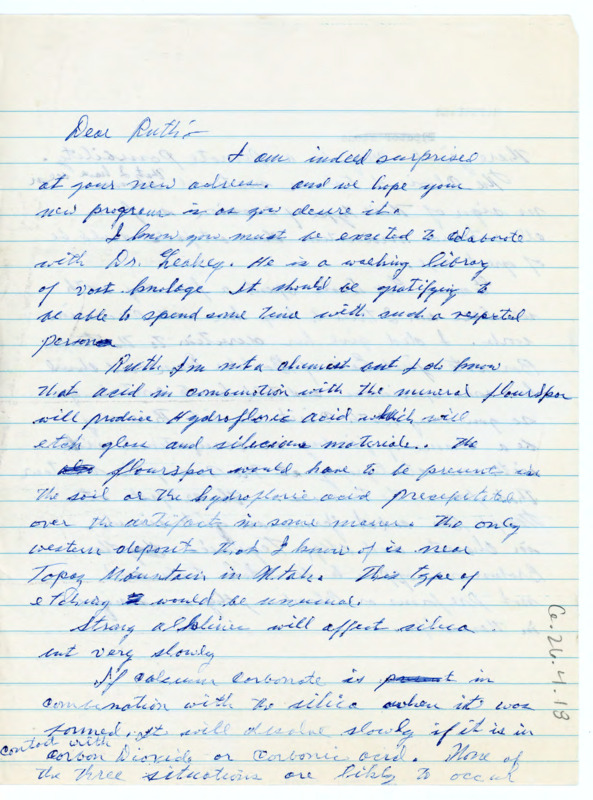 Dear Ruth:
I am indeed surprised
at your new adress. and we hope your
new program is as you desire it.
I know you must be excited to elaborate
with Dr. Leakey. He is a walking library
of vast knolage it should be gratifying to
be able to spend some time with such a respected
person
Ruth I'm not a chemist but I do know
that acid in combination with the mineral flourspar
will produce Hydrofloric acid which will
etch glass and silecious materials. The
flourspar would have to be present in
the soil or the hydrofloric acid precipitated
over the artifact in some maner. The only
western deposit that I know of is near
Topaz Mountain in Utah. This type of
etching would be unusual.
Strong alkalines will affect silica
but very slowly
If calcium carbonate is in
combination with the silica when it was
formed. it will disolve slowly if it is in
contact with
carbon Dioxide or carbonic acid. None of
the three situations are likly to occur
Ce.26.4.18